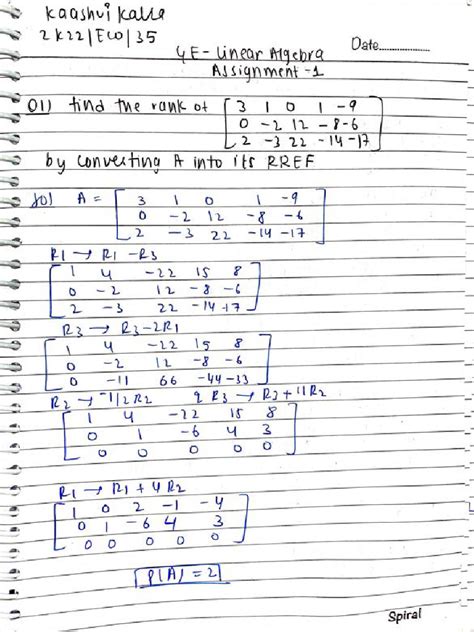 Kaashvi Kalra
2K22/ECO/35
GE - Linear Algebra
Date..................
Assignment -1
Q1) find the rank of [ 3 1 0 1 -9
0 -2 12 -8 -6
2 -3 22 -14 -17 ]
by converting A into its RREF
Sol) A = [ 3 1 0 1 -9
0 -2 12 -8 -6
2 -3 22 -14 -17 ]
R1 → R1 - R3
[ 1 4 -22 15 8
0 -2 12 -8 -6
2 -3 22 -14 -17 ]
R3 → R3-2R1
[ 1 4 -22 15 8
0 -2 12 -8 -6
0 -11 66 -44 -33 ]
R2 → -1/2 R2 & R3 → R3 + 11 R2
[ 1 4 -22 15 8
0 1 -6 4 3
0 0 0 0 0 ]
R1 → R1 + 4 R2
[ 1 0 2 -1 -4
0 1 -6 4 3
0 0 0 0 0 ]
ρ(A) = 2
Spiral